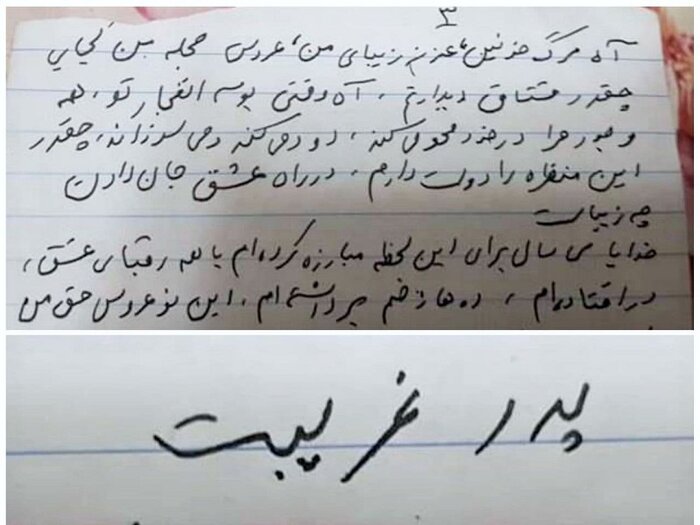 ۳
آه مرگ خونین، عزیز زیبای من، عروس حجله من کجایی
چقدر مشتاق دیدارتم، آه وقتی بوسه انفجار تو، همه
وجود مرا در خود محو می‌کند، دود می‌کند و می‌سوزاند، چقدر
این منظره را دوست دارم، در راه عشق جان دادن
چه زیباست
خدایا سی سال برای این لحظه مبارزه کرده‌ام با همه رقبای عشق،
در افتاده‌ام، ده‌ها زخم برداشته‌ام، این نو عروس حق من
پدر غریبت